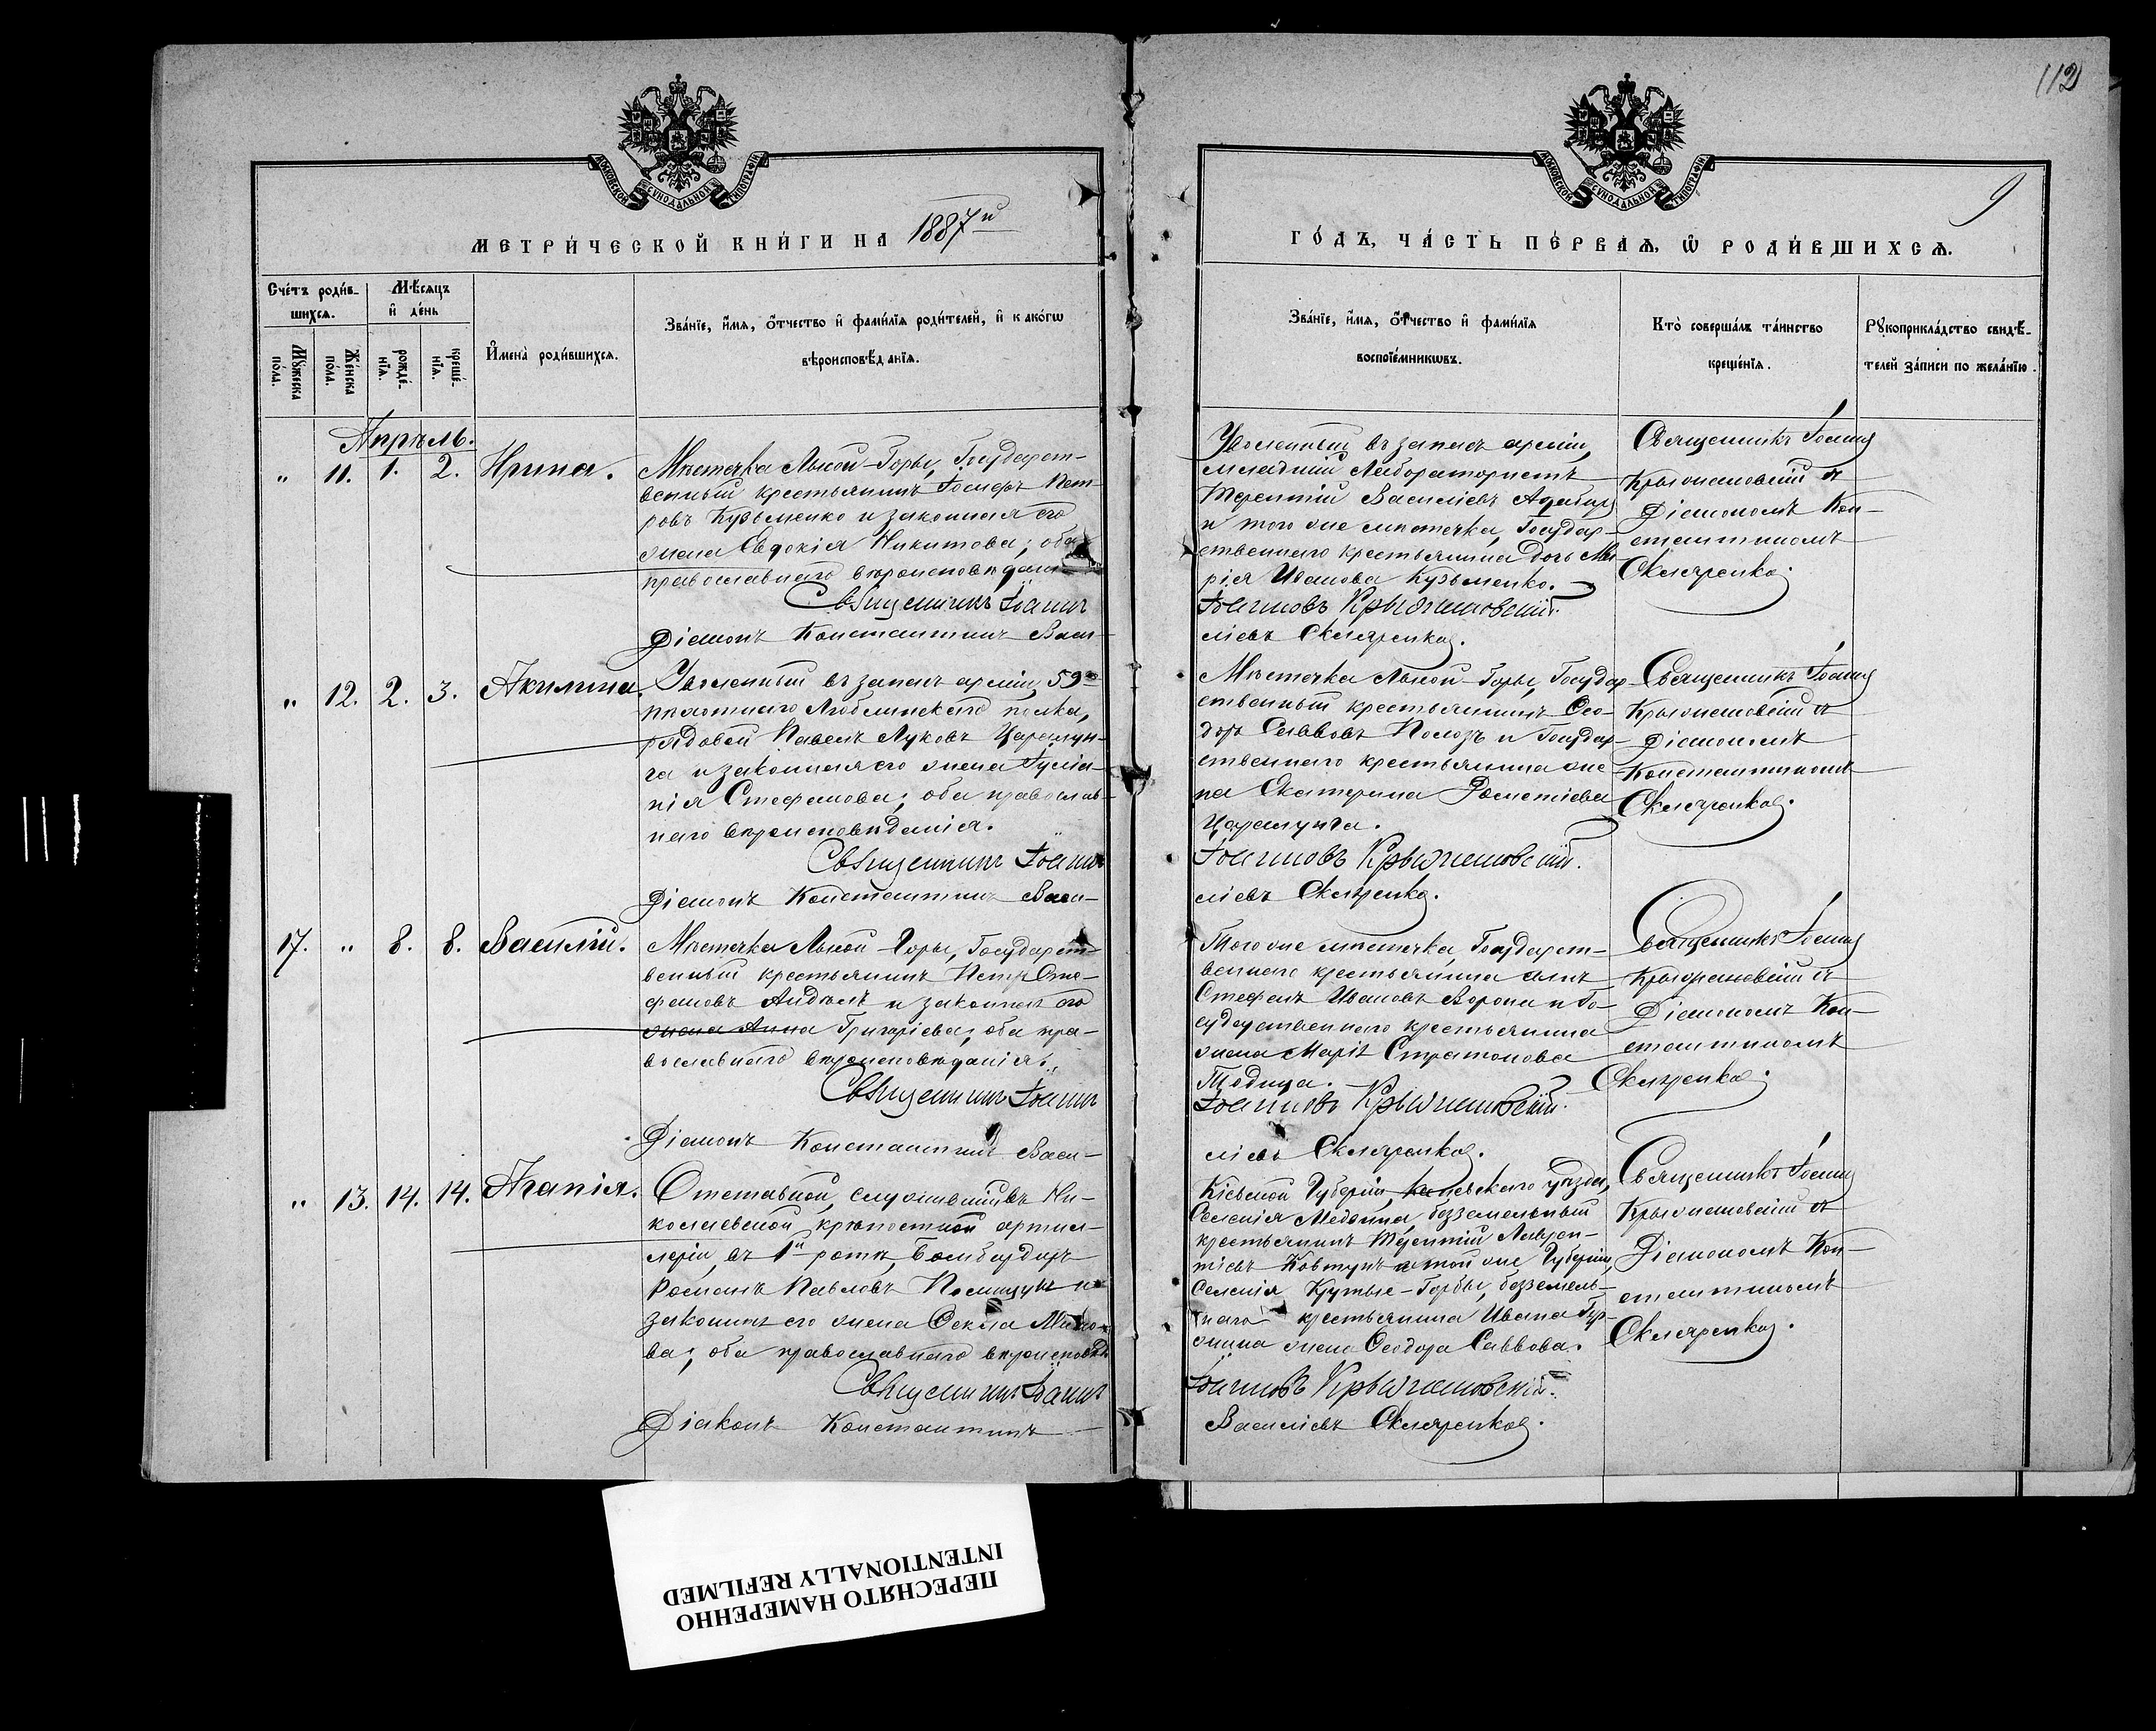 112
9
МОСКОВСКОЙ СѴНОДАЛЬНОЙ ТИПОГРАФІИ
МОСКОВСКОЙ СѴНОДАЛЬНОЙ ТИПОГРАФІИ
МЕТРИ́ЧЕСКОЙ КНИ́ГИ НА 1887й
ГО́ДЪ, ЧА́СТЬ ПЕ́РВАѦ, Ѿ РОДИ́ВШИХСѦ.
Сче́тъ роди́в-
шихсѧ.
Мѣ́сѧцъ
и҆ де́нь
Мꙋ́жеска
по́ла.
Же́нска
по́ла.
рожде́-
нїѧ.
креще́-
нїѧ.
И҆мена̀ роди́вшихсѧ.
Зва́нїе, и҆́мѧ, ѻ҆́тчество и҆ фами́лїѧ роди́телей, и҆ како́гѡ
вѣроисповѣ́данїѧ.
Зва́нїе, и҆́мѧ, ѻ҆́тчество и҆ фами́лїѧ
воспрїе́мникѡвъ.
Кто̀ соверша́лъ та́инство
креще́нїѧ.
Рꙋкоприкла́дство свидѣ́-
телей за́писи по жела́нїю.
Апрѣль.
" 11. 1. 2. Ирина.
Мѣстечка Лысой-Горы, Государст-
венный крестьянинъ Іосифъ Пет-
ровъ Кузьменко и законная его
жена Евдокія Никитова; оба
православнаго вѣроисповѣданія
Священникъ Іоаннъ
Діаконъ Константинъ Васи-
Уволенный въ запасъ арміи,
младшій Лаборатористъ
Терентій Василіевъ
и того же мѣстечка, Государ-
ственнаго крестьянина дочь Ма-
рія Иванова Кузьменко.
Іоанновъ Крыжановскій.
ліевъ Скляренко.
Священникъ Іоаннъ
Крыжановскій съ
Діакономъ Кон-
стантиномъ
Скляренко.
" 12. 2. 3. Акилина.
Уволенный въ запасъ арміи, 59го
пѣхотнаго Люблинскаго полка,
рядовой Павелъ Луковъ Царалун-
га и законная его жена Іуліа-
нія Стефанова; оба православ-
наго вѣроисповѣданія.
Священникъ Іоаннъ
Діаконъ Константинъ Васи-
Мѣстечка Лысой-Горы, Государ-
ственный крестьянинъ Ѳео-
доръ Саввовъ Полозъ и Государ-
ственнаго крестьянина же-
на Екатерина
Царалунга.
Іоанновъ Крыжановскій.
ліевъ Скляренко.
Священникъ Іоаннъ
Крыжановскій съ
Діакономъ
Константиномъ
Скляренко.
17. " 8. 8. Василій.
Мѣстечка Лысой-Горы, Государст-
венный крестьянинъ Петръ Сте-
фановъ и законная его
жена Анна Григоріева; оба пра-
вославнаго вѣроисповѣданія.
Священникъ Іоаннъ
Діаконъ Константинъ Васи-
Того же мѣстечка, Государст-
веннаго крестьянина сынъ
Стефанъ Ивановъ Ворона и Го-
сударственнаго крестьянина
жена Марія Стратонова
Іоанновъ Крыжановскій.
ліевъ Скляренко.
Священникъ Іоаннъ
Крыжановскій съ
Діакономъ Кон-
стантиномъ
Скляренко.
" 13. 14. 14. Агапія.
Отставной, служившій въ Ни-
колаевской крѣпостной артил-
леріи, въ 1й ротѣ, Бомбардиръ
Романъ Павловъ и
законная его жена Ѳекла
ва; оба православнаго вѣроисповѣд
Священникъ Іоаннъ
Діаконъ Константинъ
Кіевской Губерніи, Каневскаго уѣзда,
Селенія Медвина, безземельный
крестьянинъ Терентій Лаврен-
тіевъ Ковтунъ и той же Губерніи,
Селенія Крутые-Горбы, безземель-
наго крестьянина Ивана
жена Ѳеодора Саввова.
Іоанновъ Крыжановскій.
Василіевъ Скляренко.
Священникъ Іоаннъ
Крыжановскій съ
Діакономъ Кон-
стантиномъ
Скляренко.
ПЕРЕСНЯТО НАМЕРЕННО
INTENTIONALLY REFILMED